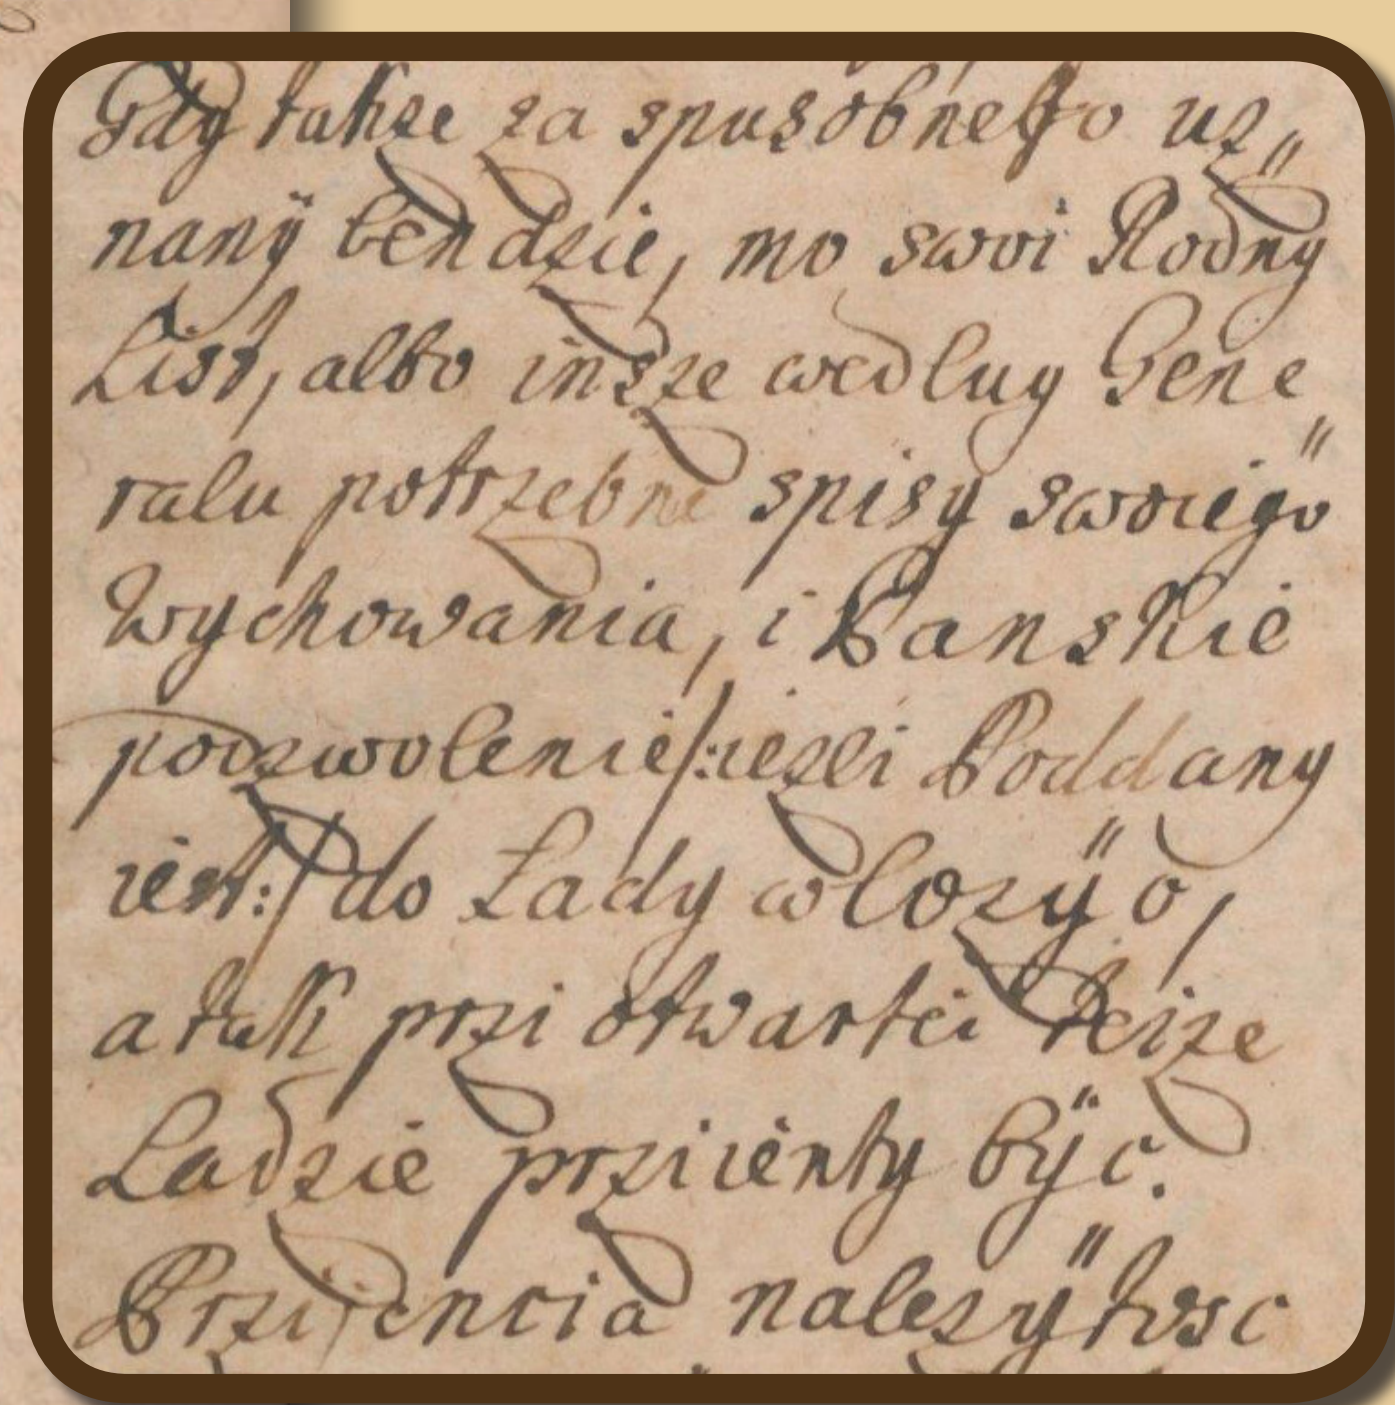 Gdy takze za spusobnego uz„
nanÿ bendzie, mo swoi Rodny
List, albo insze wedlug Gene„
ralu potrzebne spisy swoiego
Wychowania, i Panskie
pozwolenie/:iezli Poddany
iest:/ do Lady wlozÿö,
a tak przi otwartei teize
Ladzie prziienty bÿc.
Prziiencia nalezÿtosc